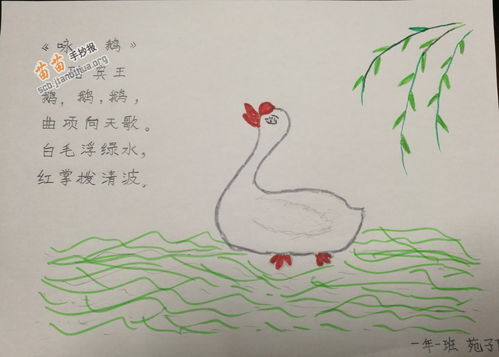 《咏 鹅》
宾王
鹅，鹅，鹅，
曲项向天歌。
白毛浮绿水，
红掌拨清波。
苗苗手抄报
scb.jianbihua.com
一年一班 苑子